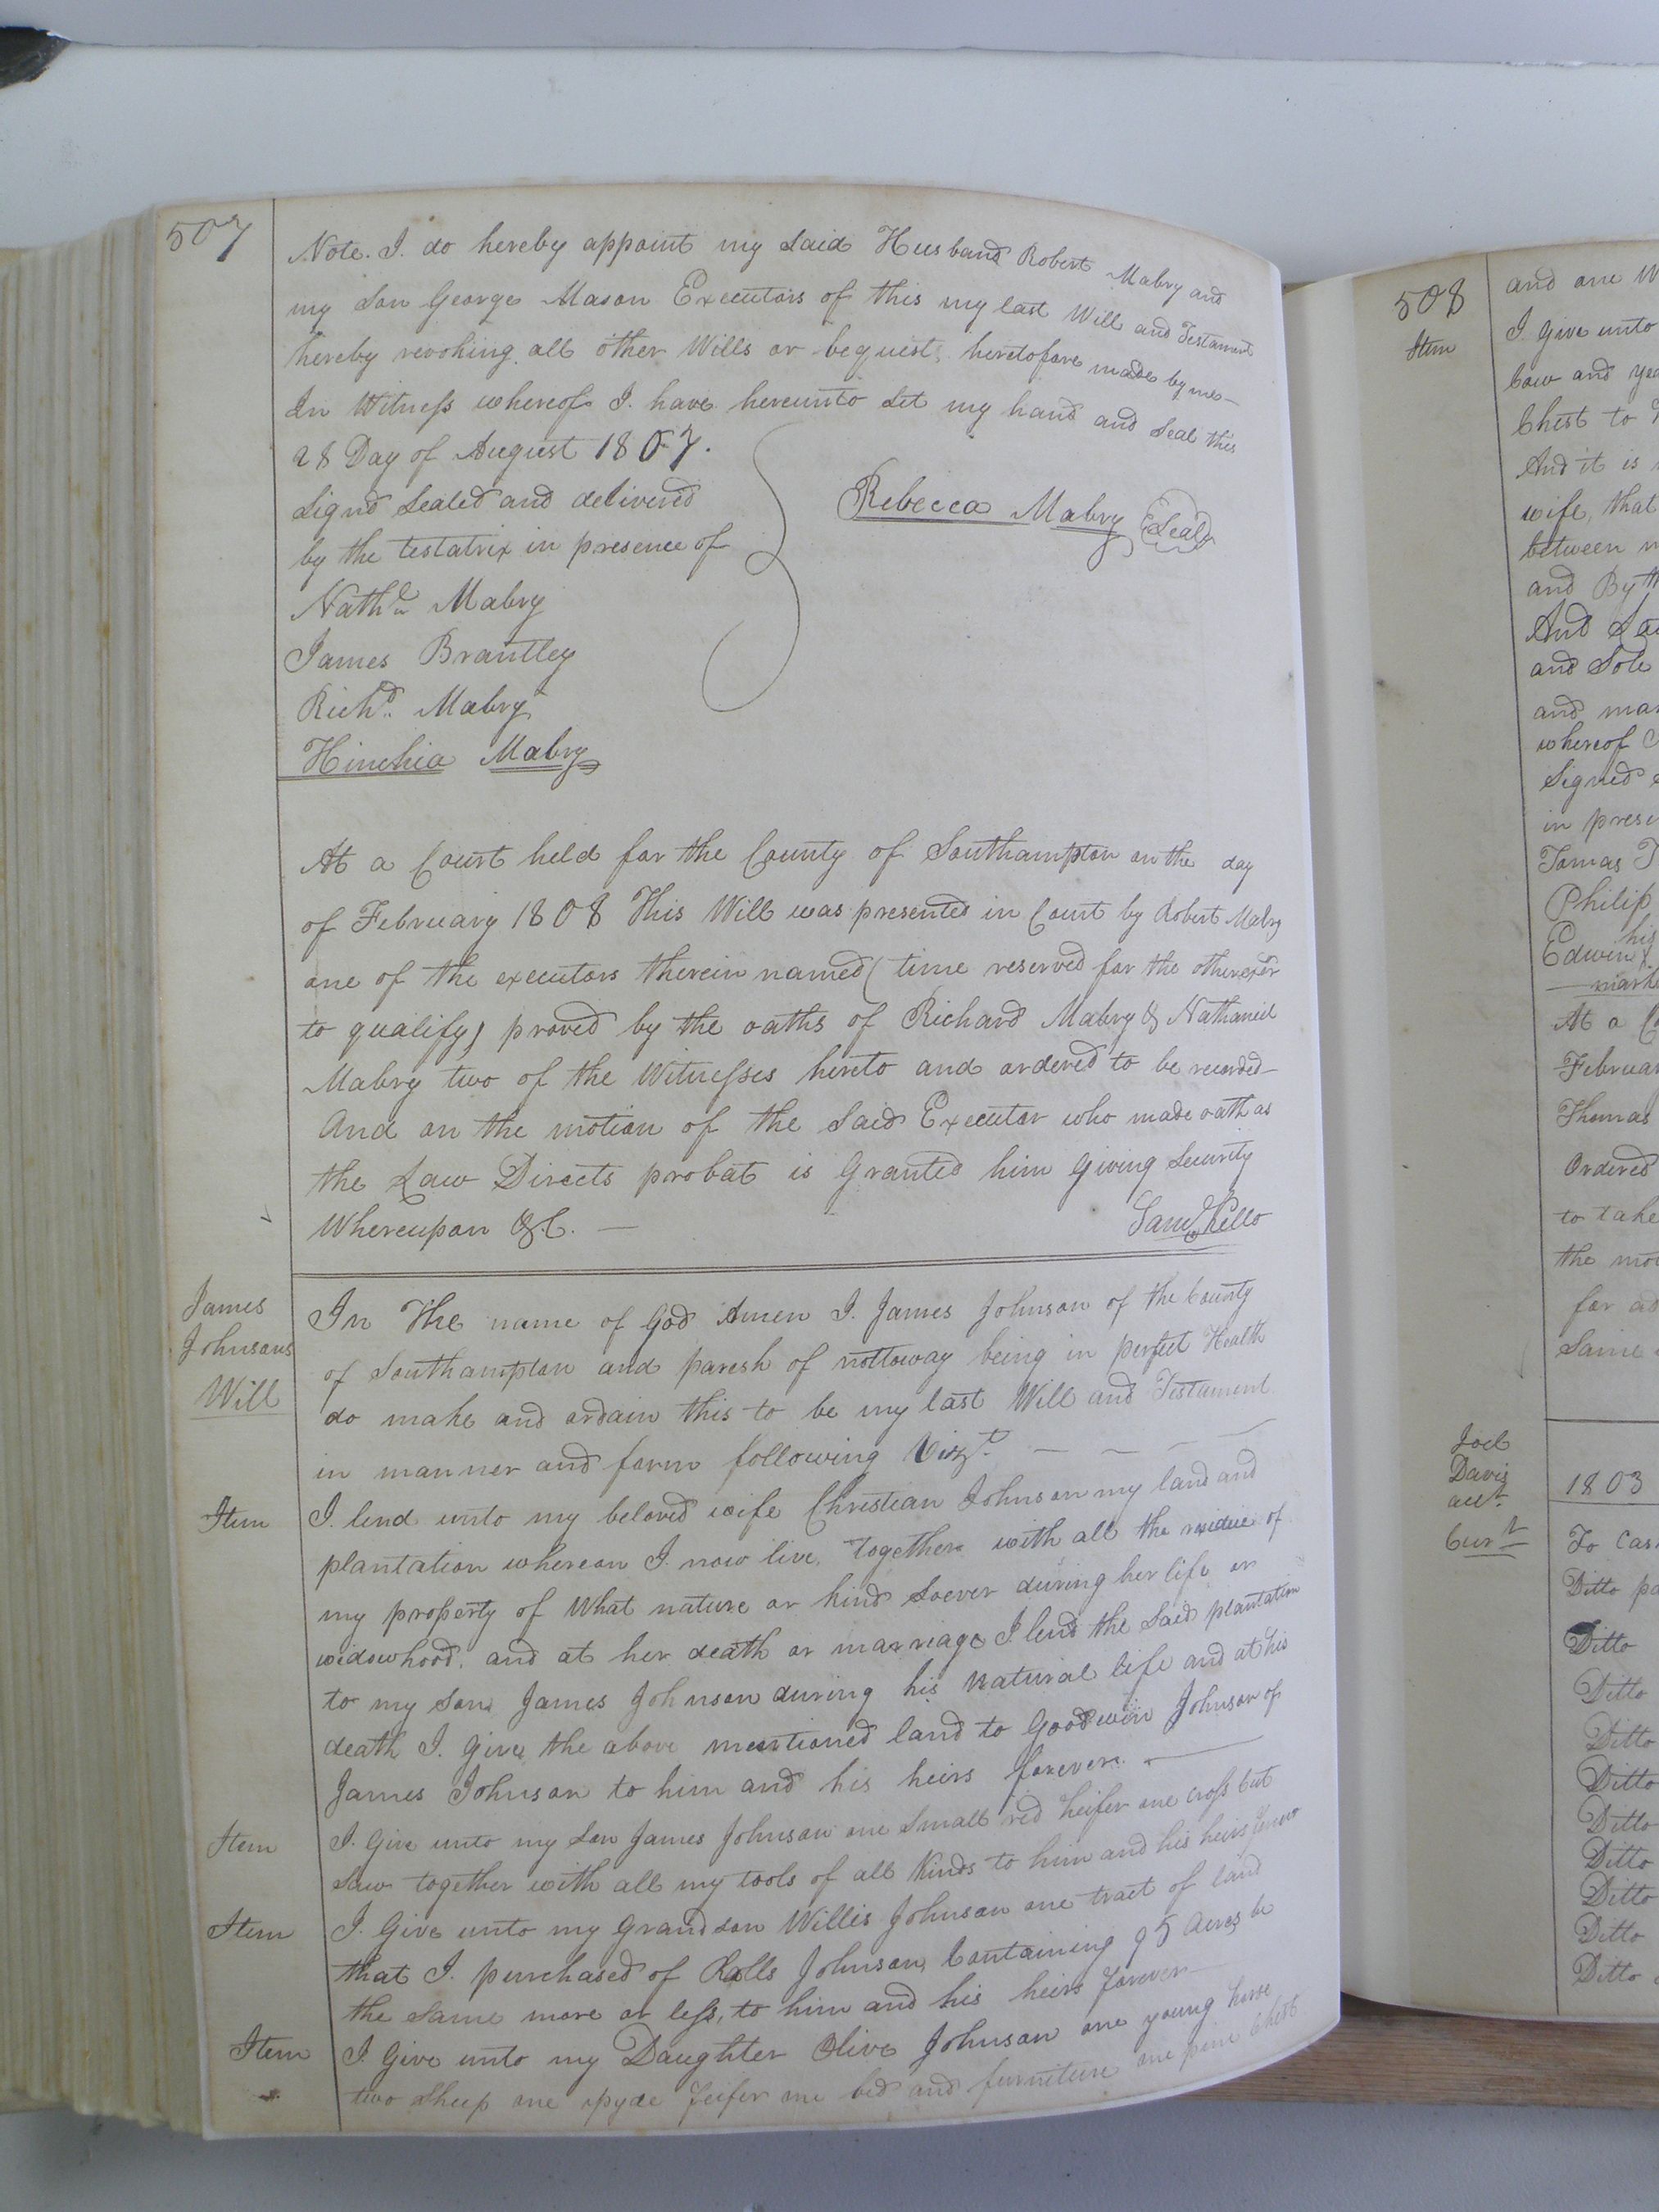 507
Note. I. do hereby appoint my said Husband Robert Mabry and
my Son George Mason Executors of this my last Will and Testament
hereby revoking all other Wills or bequests heretofore made by me —
In Witness whereof I. have hereunto Set my hand and Seal this
28 Day of August 1807.
Signd Sealed and delivered
by the testatrix in presence of
Rebecca Mabry Seal
Nathl Mabry
James Brantley
Richd. Mabry
Hinchia Mabry
At a Court held for the County of Southampton on the day
of February 1808 This Will was presented in Court by Robert Mabry
one of the executors therein named ( time reserved for the other exor
to qualify) proved by the oaths of Richard Mabry & Nathaniel
Mabry two of the Witnesses hereto and ordered to be recorded —
And on the motion of the Said Executor who made oath as
the Law Directs probat is Granted him Giving Security
Whereupon &C. —
Saml Kello
James
Johnsons
Will
In The name of God Amen I. James Johnson of the County
of Southampton and paresh of nottoway being in perfect Health
do make and ordain this to be my last Will and Testament
in manner and form following Vizt. — — — —
Item I. lend unto my beloved wife Christian Johnson my land and
plantation whereon I. now live, Together with all the residue of
my property of What nature or kind Soever during her life or
widowhood, and at her death or marriage I. lend the Said plantation
to my Son James Johnson during his natural life and at his
death I. give the above mentioned land to Goodwin Johnson of
James Johnson to him and his heirs forever. —
Item I. Give unto my Son James Johnson one Small red heifer one cross Cut
Saw together with all my tools of all Kinds to him and his heirs forever
Item I. Give unto my Grand Son Willis Johnson one tract of land
that I. purchased of Rolls Johnson, Containing 95 acres be
the Same more or less, to him and his heirs forever —
Item I. Give unto my Daughter Olive Johnson one young horse
two Sheep one heifer one bed and furniture one pine Chest
508
and one
Item I. Give unto
Cow and
Chest to
And it is
wife, that
between
and
And
and Sole
and
whereof
Signed
in
Tomas
Philip
his
Edwin X
mark
At a
Thomas
Ordered
to take
the
for as
Same
Joel
Davis
acct
Curt
1803
To Cash
Ditto
Ditto
Ditto
Ditto
Ditto
Ditto
Ditto
Ditto
Ditto
Ditto